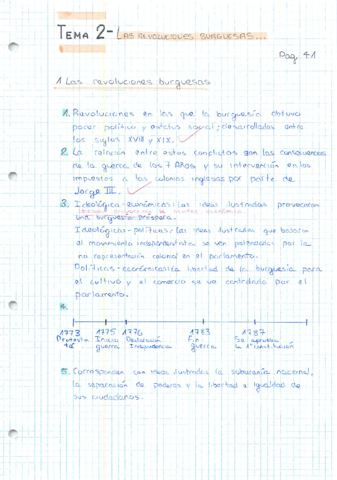 TEMA 2- LAS REVOLUCIONES BURGUESAS...
Pag 41
1. Las revoluciones burguesas
1. Revoluciones en las que la burguesía obtuvo
poder político y estatus social; desarrolladas entre
los siglos XVIII y XIX.
2. La relación entre estos conflictos son las consecuencias
de la guerra de los 7 Años y su intervención en los
impuestos a las colonias inglesas por parte de
Jorge III.
3. Ideológica-económicas: las ideas ilustradas provocaron
una burguesía próspera.
Ideológicas-políticas: las ideas ilustradas que basaron
al movimiento independentista se ven potenciadas por la
no representación colonial en el parlamento.
Políticas-económicas: la libertad de la burguesía para
el cultivo y el comercio se ve controlada por el
parlamento.
4.
1773 1775 1776 1783 1787
Protesta Inicia Declaración Fin Se aprueba
té guerra Independencia guerra la 1ª constitución
5. Corresponden con ideas ilustradas la soberanía nacional,
la separación de poderes y la libertad e igualdad de
sus ciudadanos.